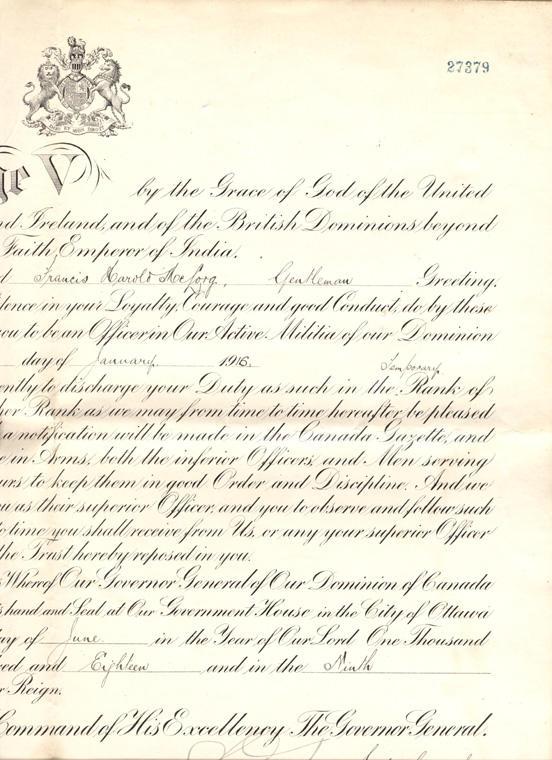 27379
DIEU ET MON DROIT
ge V by the Grace of God of the United
nd Ireland, and of the British Dominions beyond
Faith, Emperor of India.
d Francis Harold Gentleman Greeting.
dence in your Loyalty, Courage and good Conduct, do by these
you to be an Officer in Our Active Militia of our Dominion
day of January 1916. Temporary
ently to discharge your Duty as such in the Rank of
her Rank as we may from time to time hereafter be pleased
a notification will be made in the Canada Gazette, and
e in Arms, both the inferior Officers, and Men serving
urs to keep them in good Order and Discipline. And we
ou as their superior Officer, and you to observe and follow such
to time you shall receive from Us, or any your superior Officer
the Trust hereby reposed in you.
s Whereof Our Governor General of Our Dominion of Canada
is hand and Seal at Our Government House, in the City of Ottawa
day of June in the Year of Our Lord One Thousand
red and Eighteen and in the Ninth
r Reign.
Command of His Excellency The Governor General.